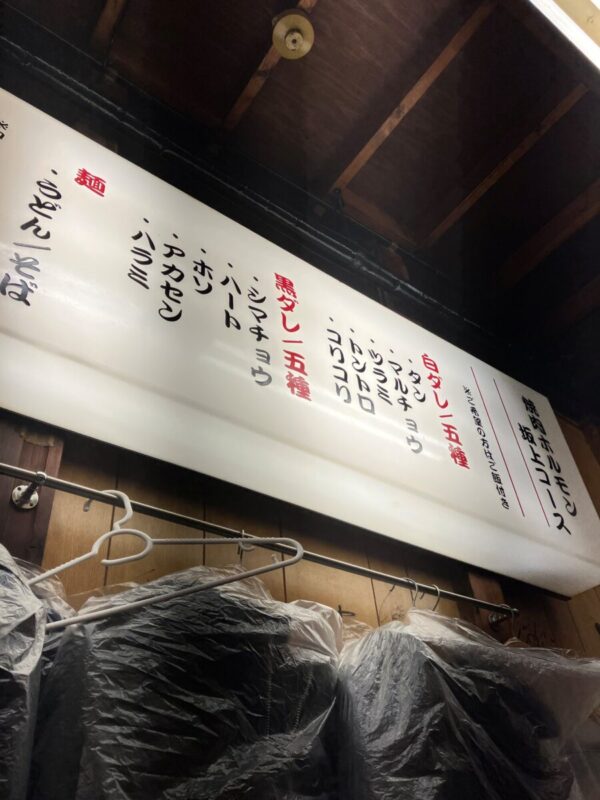 焼肉ホルモン
坂上コース
※ご希望の方はご飯付き
白ダレ／五種
・タン
・マルチョウ
・ツラミ
・トントロ
・コリコリ
黒ダレ／五種
・シマチョウ
・ハート
・ホソ
・アカセン
・ハラミ
麺
・うどん／そば